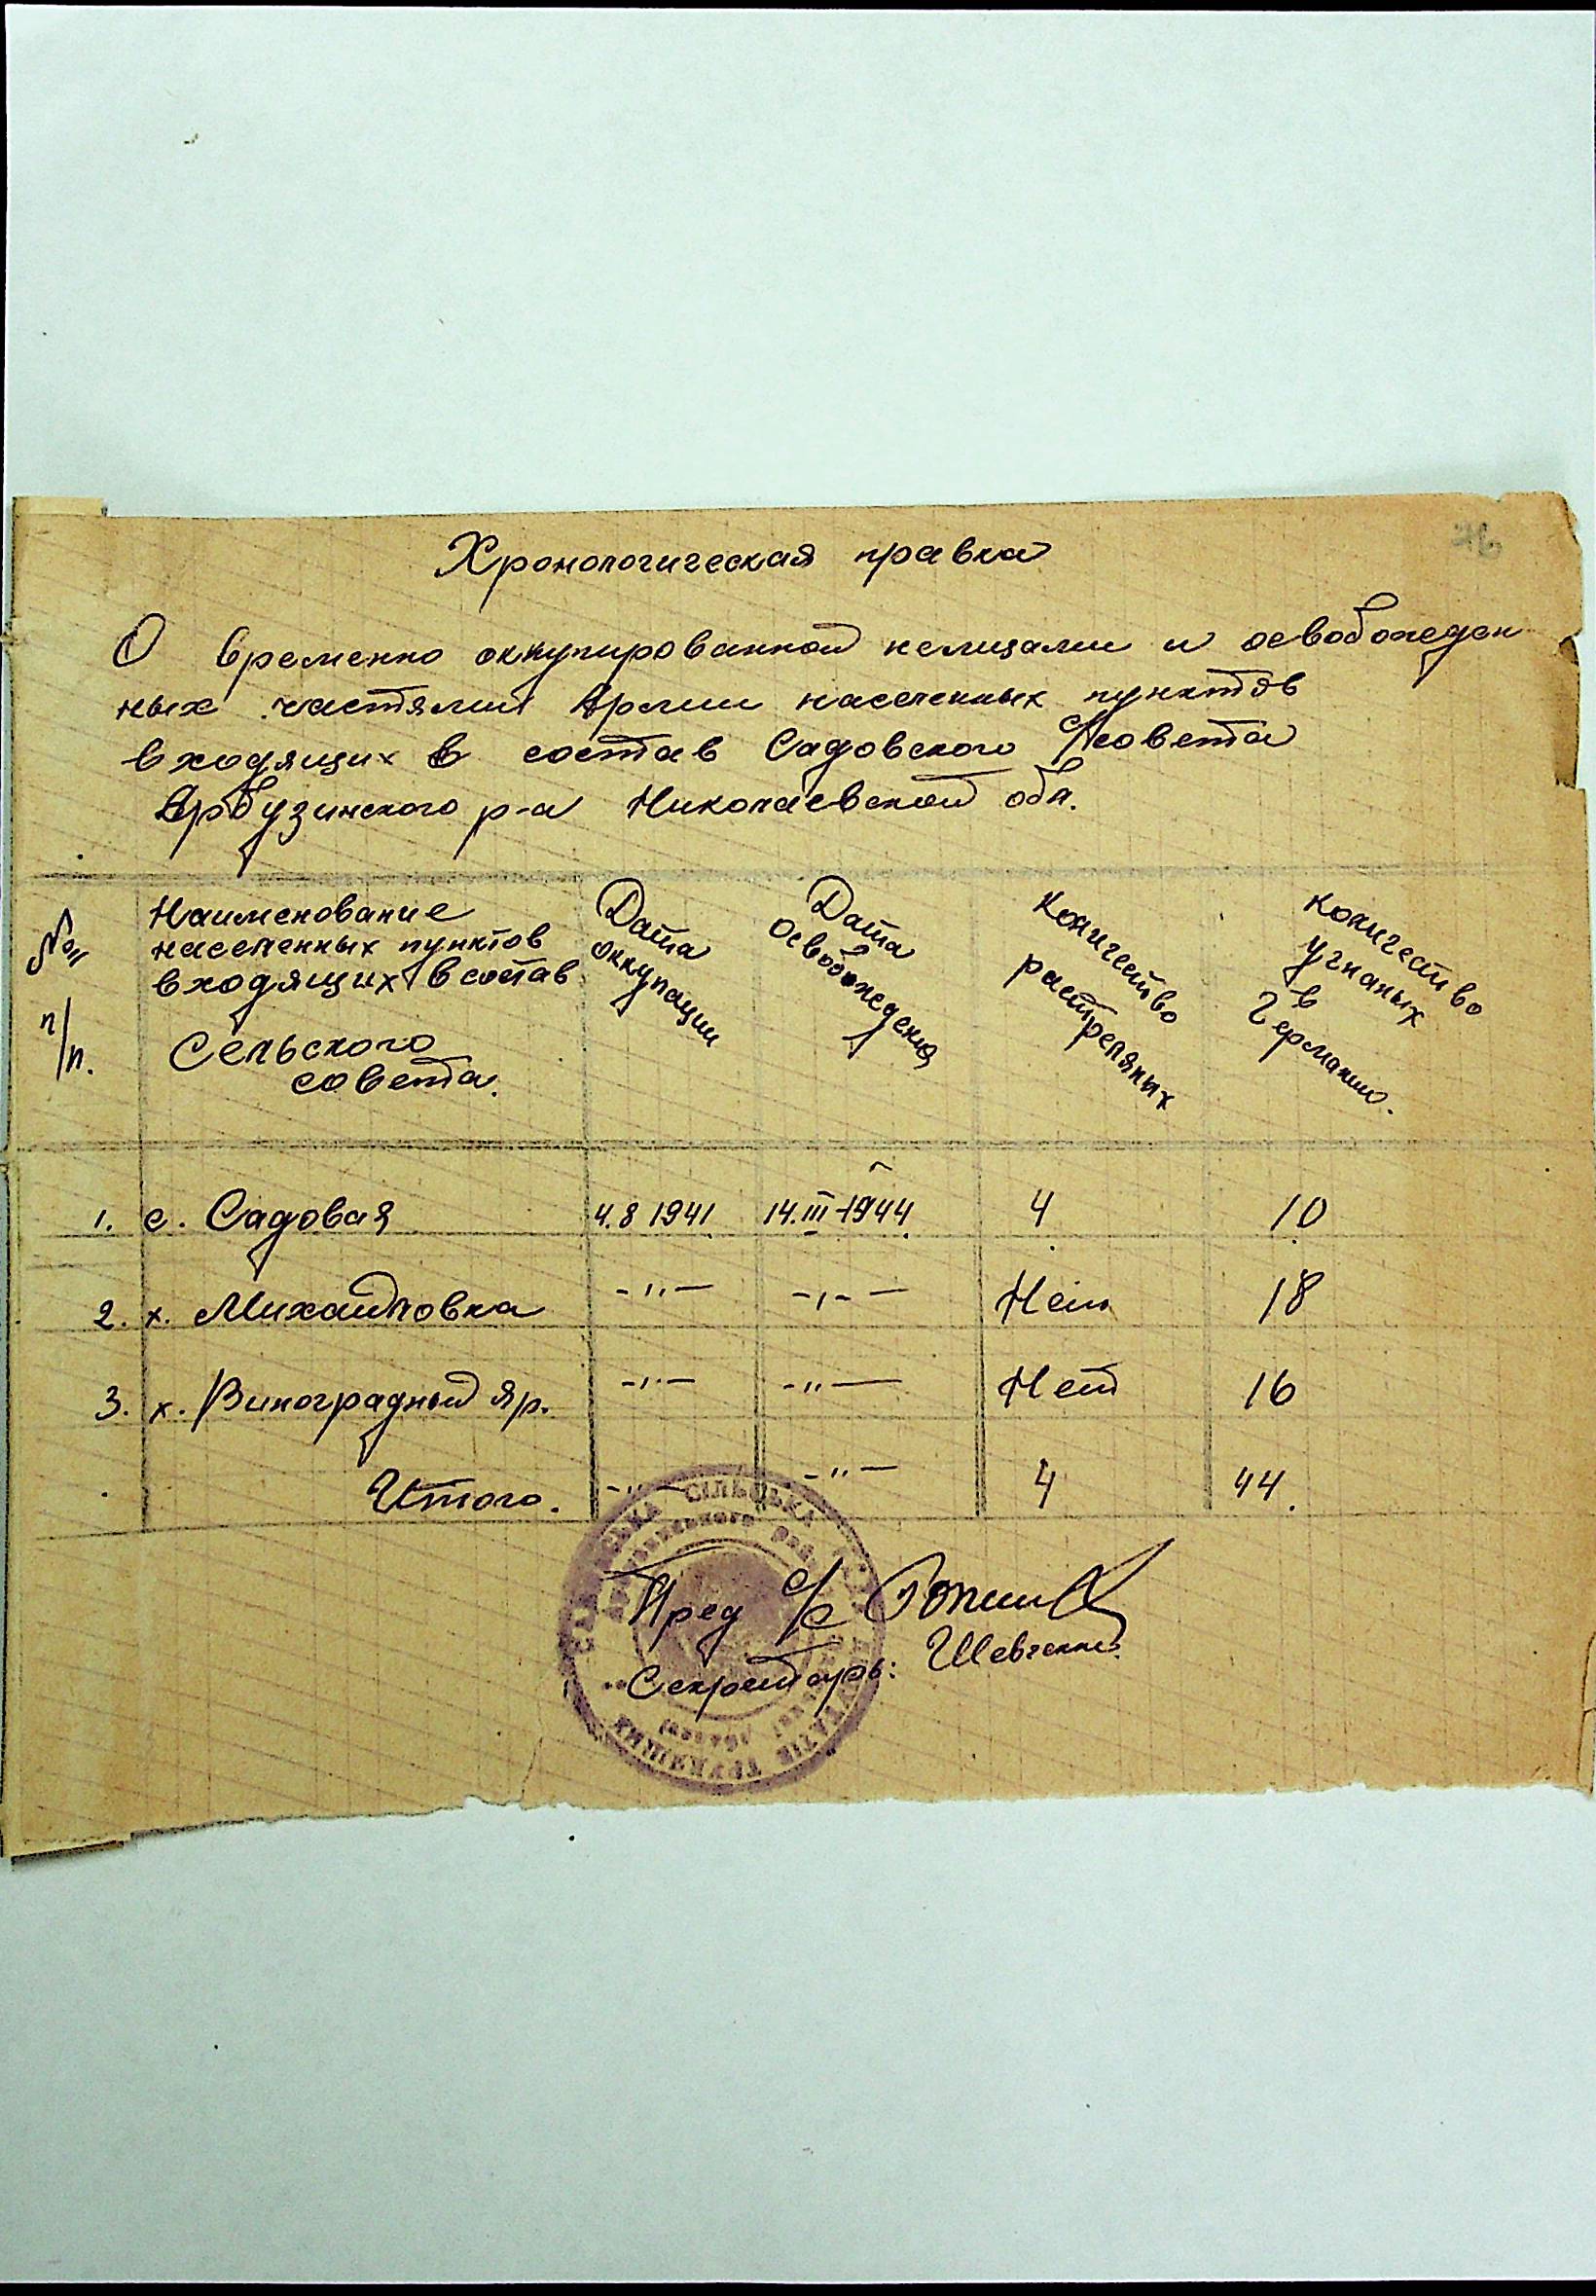 Хронологическая правка
О временно оккупированной немцами и освобожден
ных частями Армии населенных пунктов
входящих в состав Садовского с/совета
Арбузинского р-а Николаевской обл.
№№ п/п. Наименование населенных пунктов входящих в состав Сельского совета. Дата оккупации Дата освобождения Количество растрелянных Количество угнаных в Германию.
1. с. Садовая 4.8 1941 14.III-1944 4 10
2. х. Михайловка -"- -"- Нет 18
3. х. Виноградный Яр. -"- -"- Нет 16
Итого. -"- -"- 4 44.
СІЛЬСЬКА
Пред с/с
Секретарь: Шевченко
ТРУДЯЩИХ